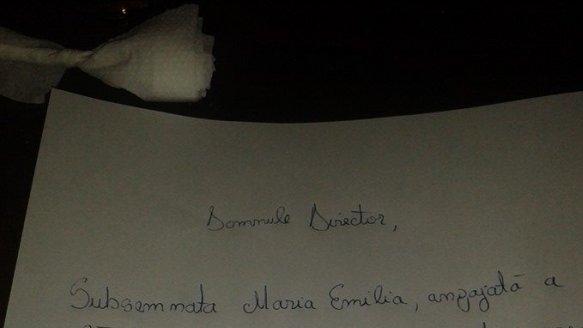 Domnule Director,
Subsemnata Maria Emilia, angajată a